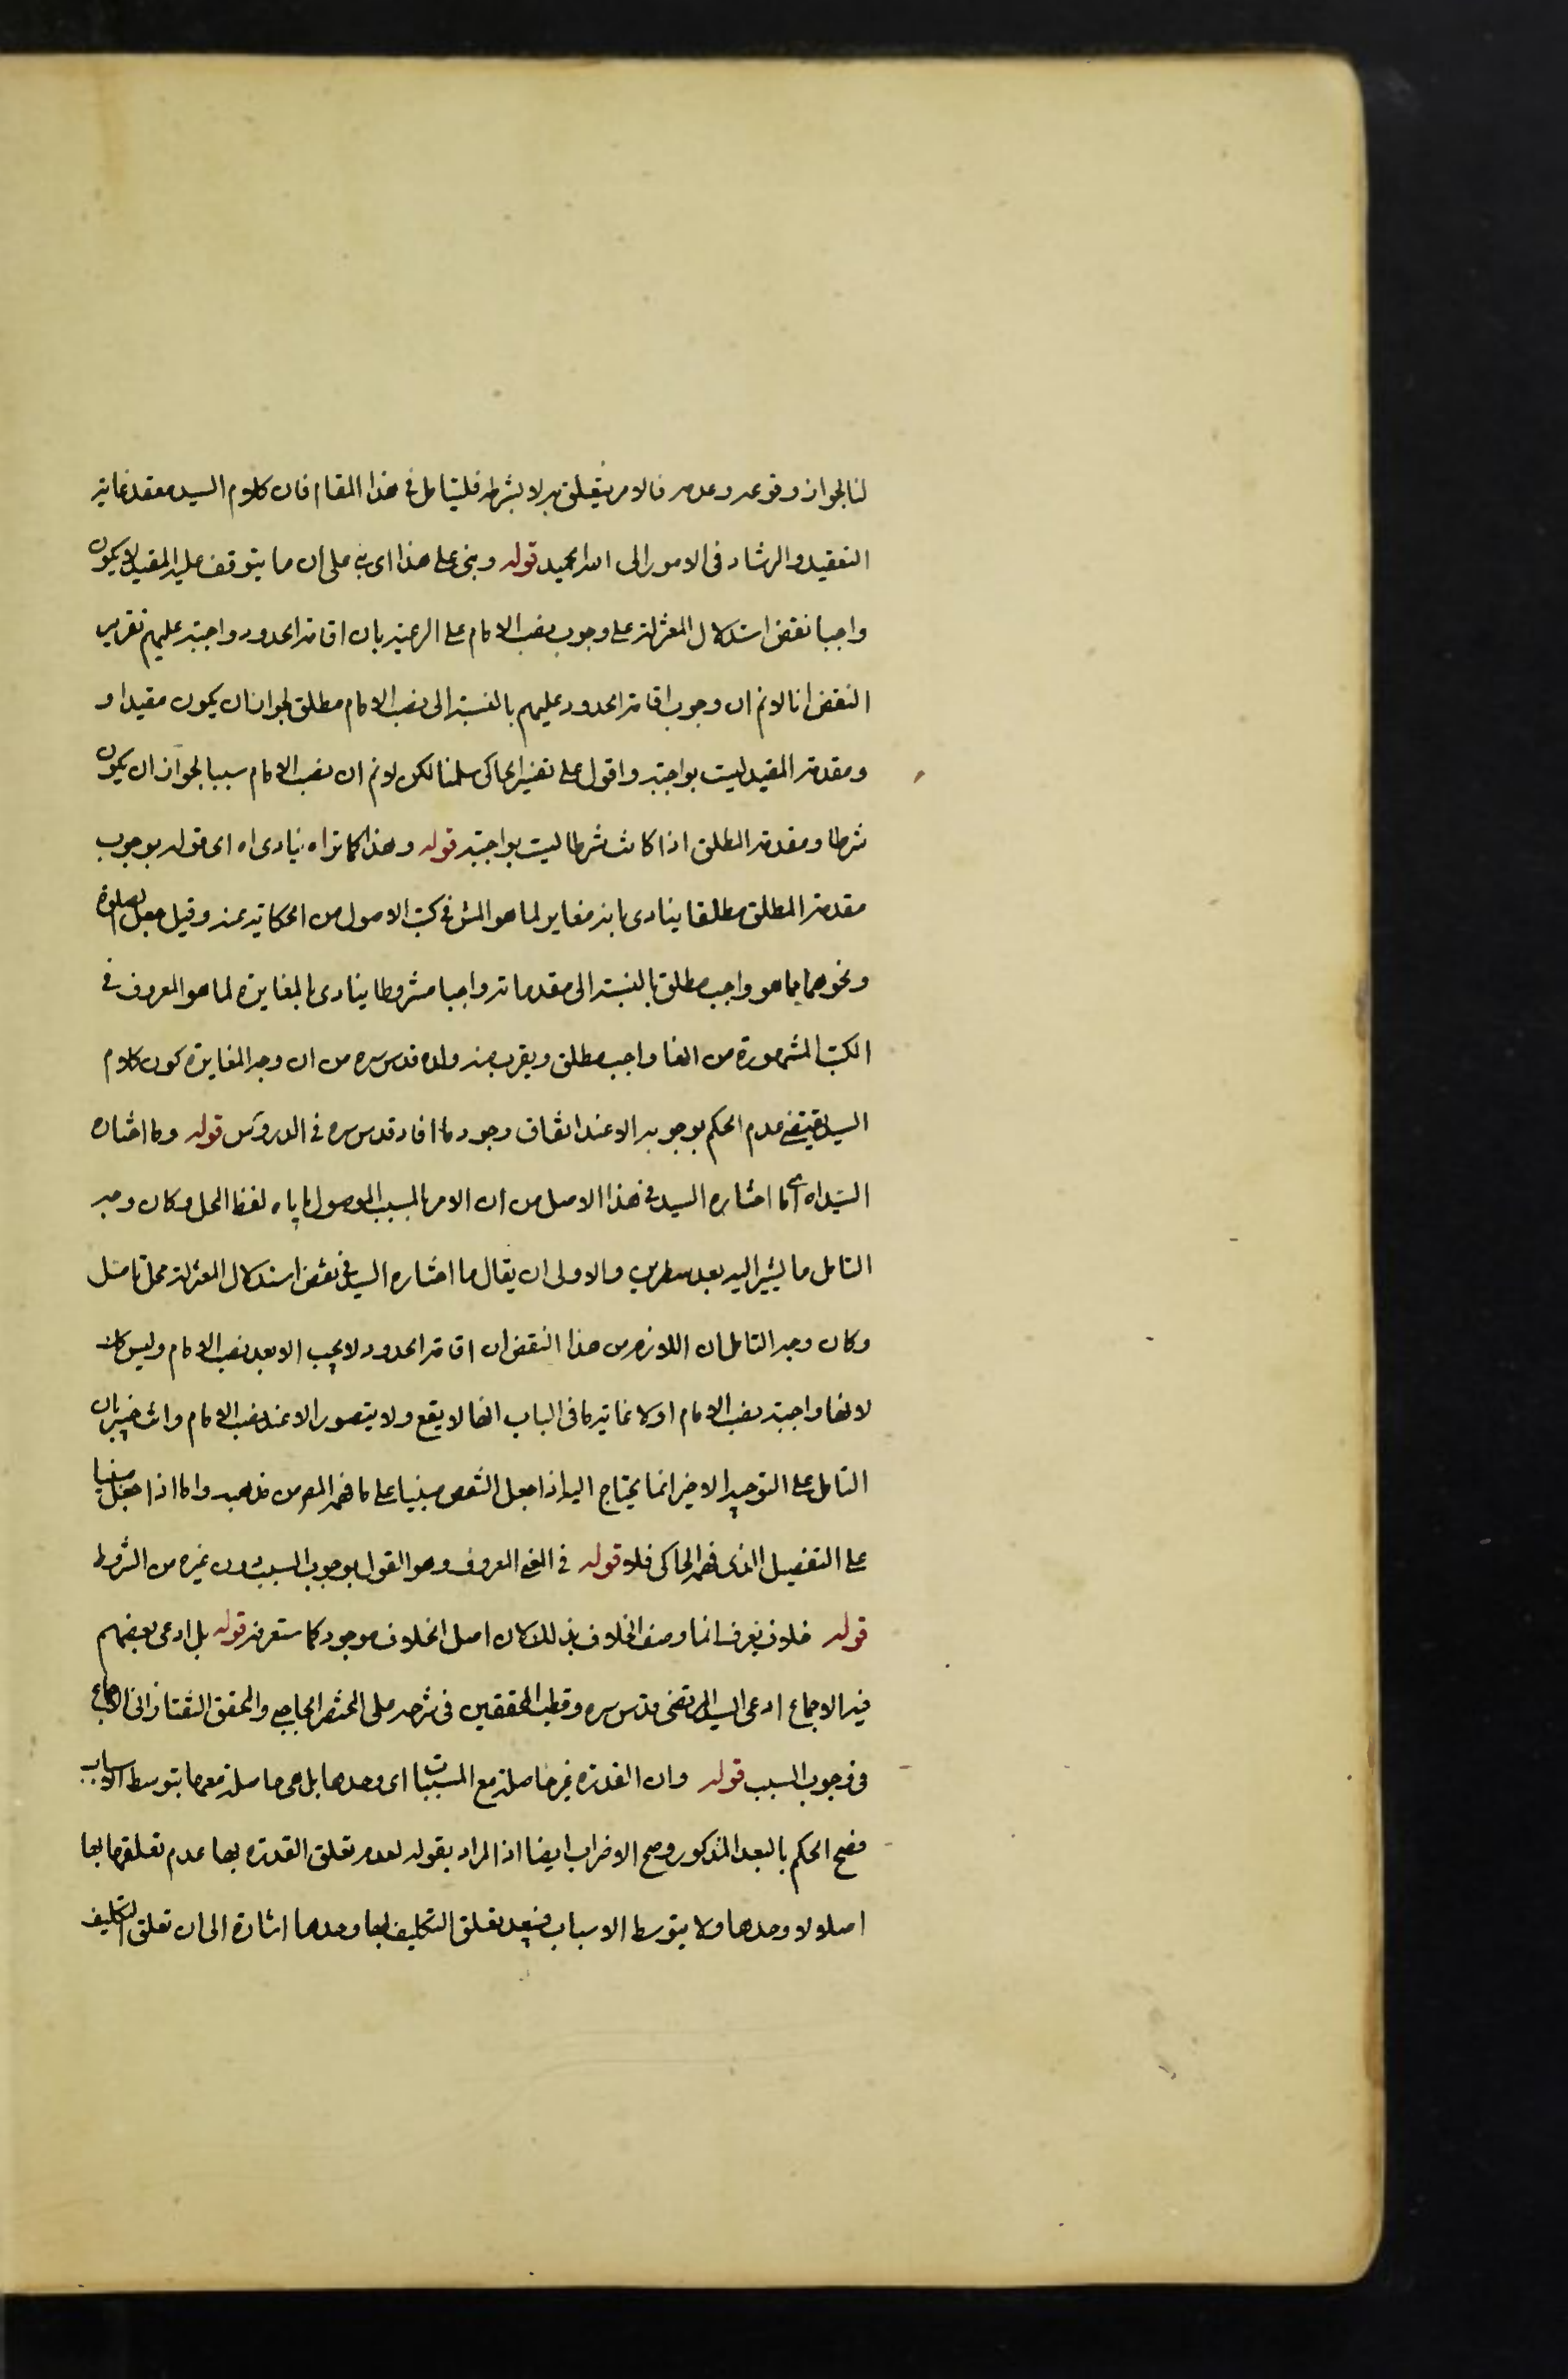 لنا لجواز وقوعه وعدمه فالامر يتعلق به لا بشرطه فليتامل فى هذا المقام فان كلام السيد معقد غاية
التعقيد والرشاد فى الامور الى الله الحميد قوله وبنى على هذا اى بنى على ان ما يتوقف عليه المقيد لا يكون
واجبا نقض استدلال المعتزلة على وجوب نصب الامام على الرعية بان اقامة الحدود واجبة عليهم تقرير
النقض انا لانم ان وجوب اقامة الحدود عليهم بالنسبة الى نصب الامام مطلق لجواز ان يكون مقيدا و
ومقدمة المقيد ليست بواجبة واقول على تفسير الحاكى سلمنا لكن لانم ان نصب الامام سببا لجواز ان يكون
شرطا ومقدمة المطلق اذا كانت شرطا ليست بواجبة قوله وهذا كما تراه ينادى اه اى قوله بوجوب
مقدمة المطلق مطلقا ينادى بانه مغاير لما هو المش فى كتب الاصول من الحكاية عنه وقيل جعل الصلوة
ونحوهما مما هو واجب مطلق بالنسبة الى مقدماته واجبا مشروطا ينادى بالمغايرة لما هو المعروف فى
الكتب المشهورة من انها واجب مطلق ويقرب منه ولده قدس سره من ان وجه المغايرة كون كلام
السيد يقتضى عدم الحكم بوجوبه الا عند اتفاق وجوده ما افاد قدس سره فى الدروس قوله وما اختاره
السيد اه اى ما اختاره السيد فى هذا الاصل من ان الامر بالمسبب الموصول اياه لفظ المحل وكان وجه
التامل ما يشير اليه بعد سطرين والاولى ان يقال ما اختاره السيد فى نقض استدلال المعتزلة محل تامل
وكان وجه التامل ان اللازم من هذا النقض ان اقامة الحدود لا يجب الا بعد نصب الامام وليس كك
لانها واجبة نصب الامام اولا غاية ما فى الباب انها لا يقع ولا يتصور الا عند نصب الامام وانت خبير بان
التامل على التوجيه الاخير انما يحتاج اليه اذا جعل النقض مبنيا على ما فهمه المص من مذهبه واما اذا جعل مبنيا
على التفصيل الذى فهمه الحاكى فلا قوله فى المعنى المعروف وهو القول بوجوب السبب دون غيره من الشروط
قوله خلاف يعرف انما وصف الخلاف بذلك لان اصل الخلاف موجود كما ستعرفه قوله بل ادعى بعضهم
فيه الاجماع ادعى السيد المرتضى قدس سره وقطب المحققين فى شرحه على المختصر الحاجبى والمحقق التفتازانى الاجماع
فى وجوب السبب قوله وان القدرة غير حاصلة مع المسببات اى وحدها بل هى حاصلة معها بتوسط الاسباب
فصح الحكم بالبعد المذكور وصح الاضراب ايضا اذ المراد بقوله لعدم تعلق القدرة بها عدم تعلقها بها
اصلا لا وحدها ولا بتوسط الاسباب فبعد تعلق التكليف بها وحدها اشارة الى ان تعلق التكليف